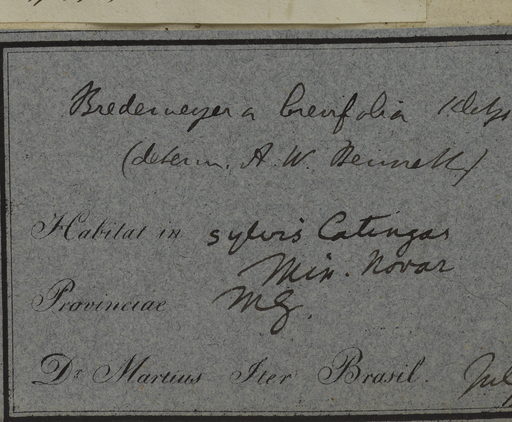 Bredemeyera brevifolia Klotzs
(determ. A. W. Bennett)
Habitat in sylvis Catingas
Min. Novar
Provinciae MG.
Dr Martius Iter Brasil. Jul